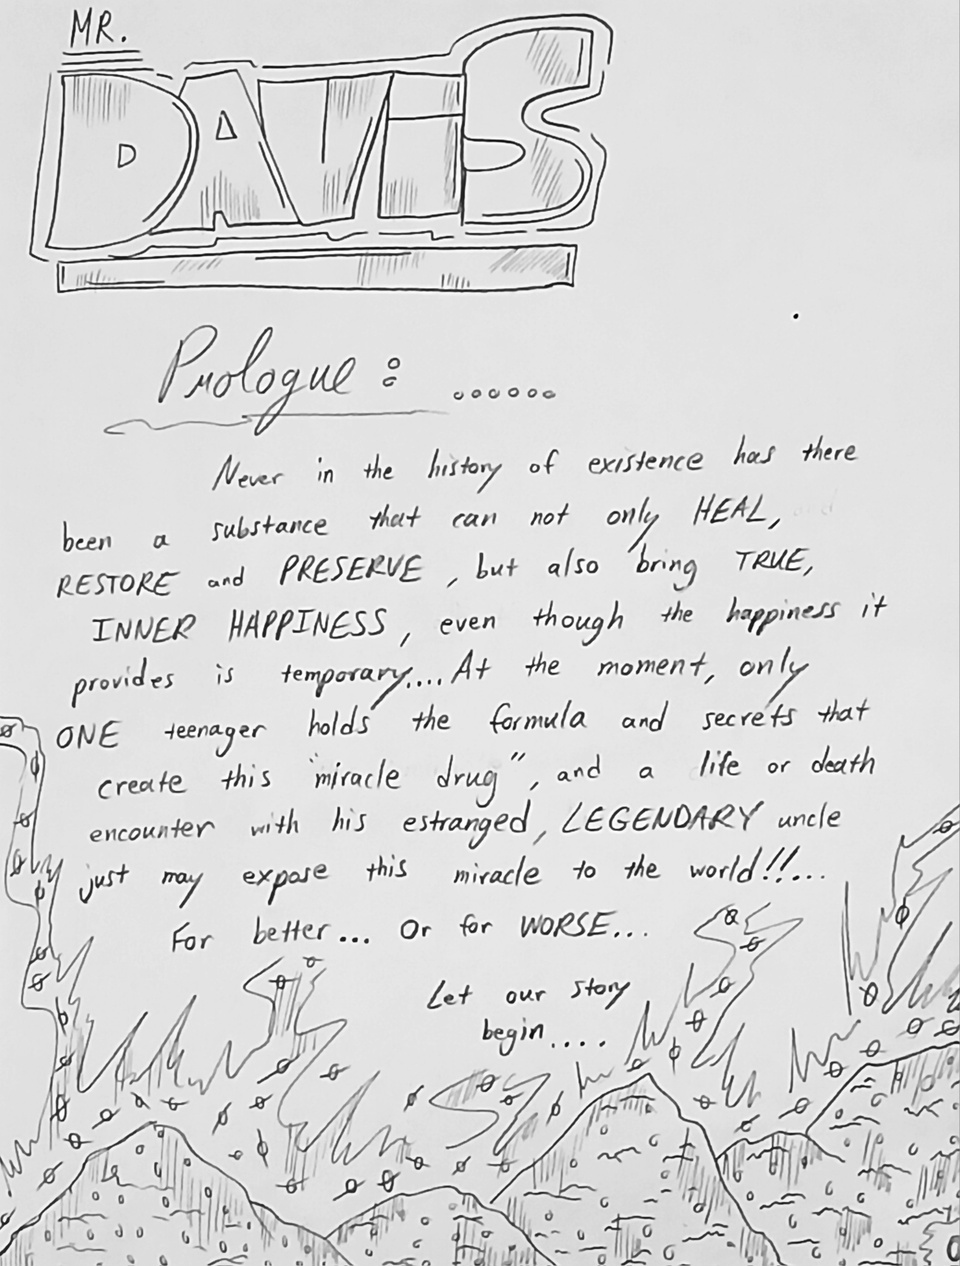 MR.
DAVIS
Prologue: ......
Never in the history of existence has there
been a substance that can not only HEAL,
RESTORE and PRESERVE, but also bring TRUE,
INNER HAPPINESS, even though the happiness it
provides is temporary.... At the moment, only
ONE teenager holds the formula and secrets that
create this "miracle drug", and a life or death
encounter with his estranged, LEGENDARY uncle
just may expose this miracle to the world!!...
For better... Or for WORSE...
Let our story
begin....